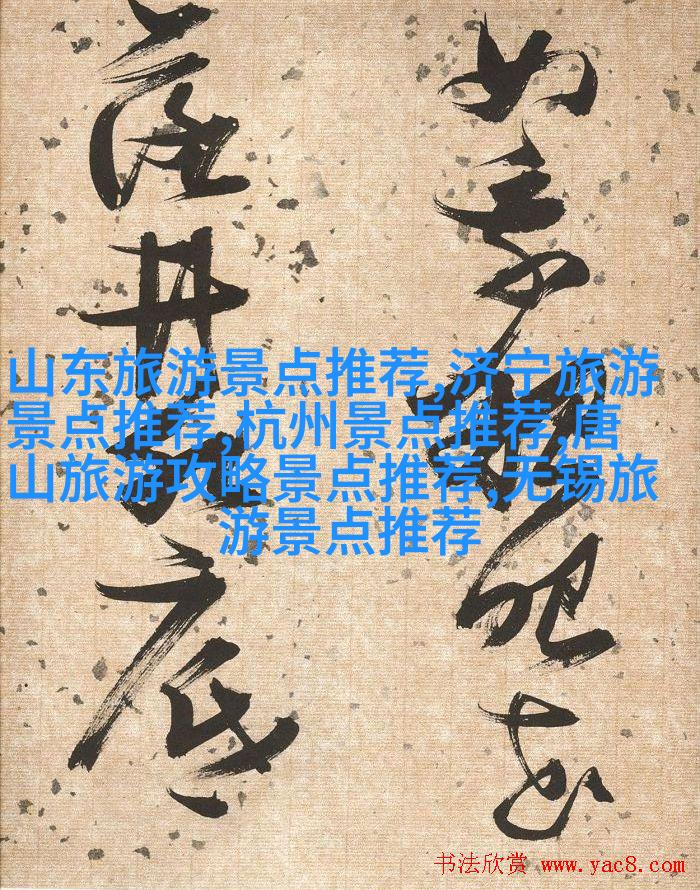 如
落井底
山东旅游景点推荐,济宁旅游
景点推荐,杭州景点推荐,唐
山旅游攻略景点推荐,无锡旅
游景点推荐
书法欣赏 www.yac8.com